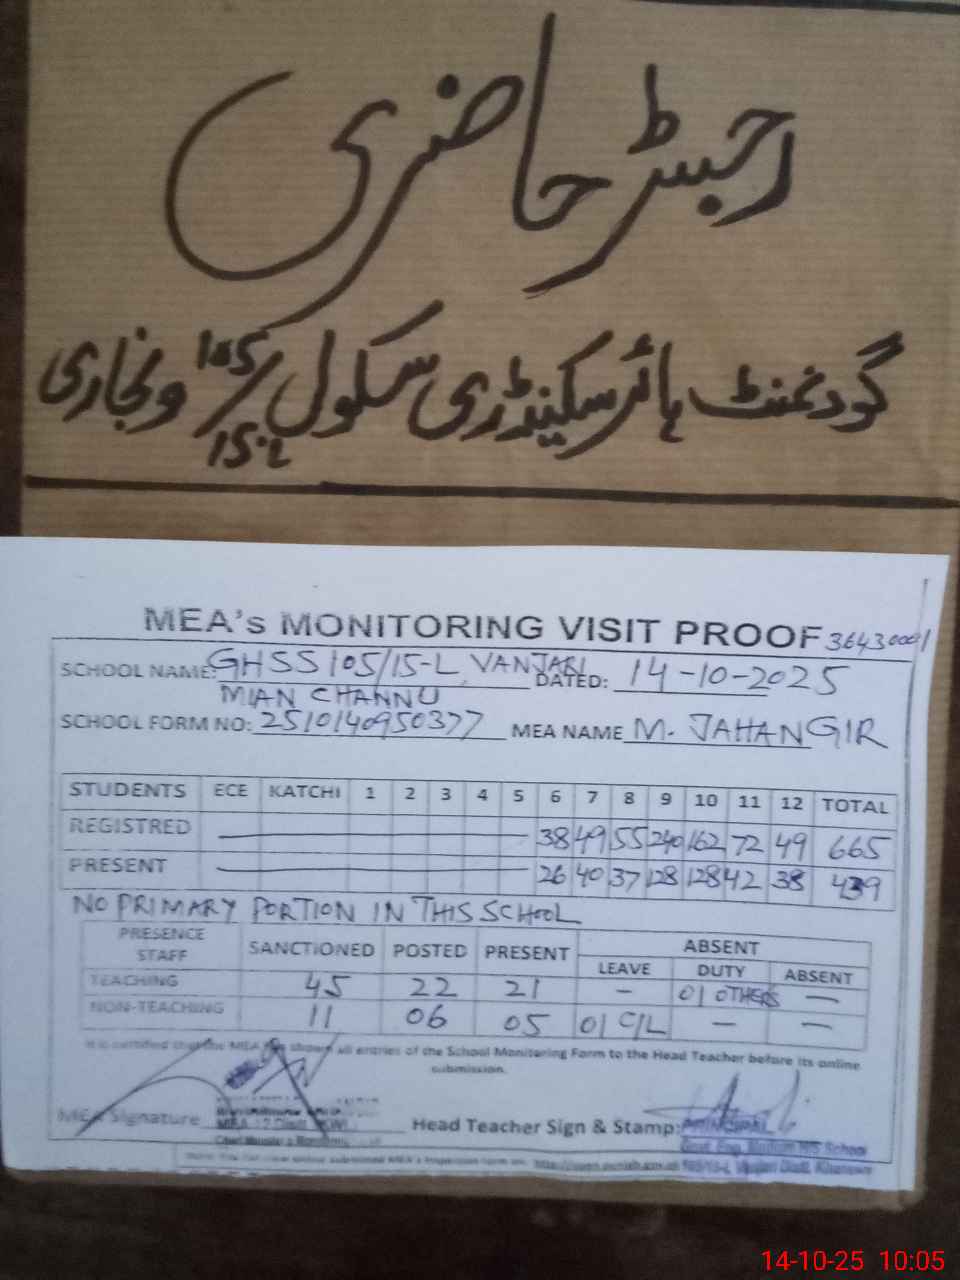 رجسٹر حاضری
گورنمنٹ ہائر سکینڈری سکول 105/15-L ونجاری
MEA's MONITORING VISIT PROOF 36430001
SCHOOL NAME: GHSS 105/15-L, VANJARI DATED: 14-10-2025
MIAN CHANNU
SCHOOL FORM NO: 2510140950377 MEA NAME M. JAHANGIR
STUDENTS ECE KATCHI 1 2 3 4 5 6 7 8 9 10 11 12 TOTAL
REGISTRED 38 49 55 240 162 72 49 665
PRESENT 26 40 37 128 128 42 38 439
NO PRIMARY PORTION IN THIS SCHOOL
PRESENCE STAFF SANCTIONED POSTED PRESENT ABSENT
LEAVE DUTY ABSENT
TEACHING 45 22 21 – 01 OTHERS —
NON-TEACHING 11 06 05 01 C/L — —
It is certified that the MEA has shown all entries of the School Monitoring Form to the Head Teacher before its online
submission.
MEA Signature Head Teacher Sign & Stamp: PRINCIPAL
H/S School
105/15-L, Vanjari Distt. Khanewal
14-10-25 10:05